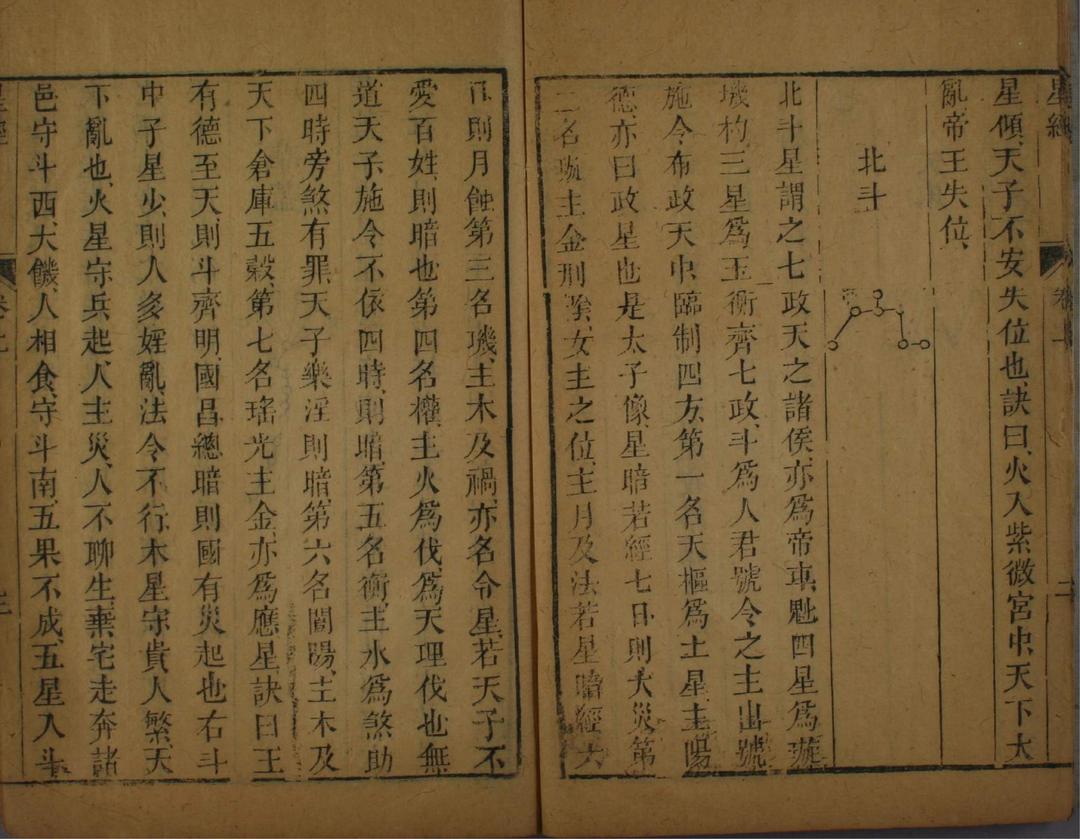 星經 卷上 二
星傾、天子不安失位也、訣曰、火入紫微宮中、天下大
亂、帝王失位、
北斗
北斗星謂之七政天之諸侯、亦爲帝車、魁四星爲璇
璣杓三星爲玉衡齊七政、斗爲人君號令之主出號
施令布政天中、臨制四方、第一名天樞爲土星主陽
德、亦曰政星也是太子像、星暗若經七日、則大災第
二名璇主金刑 女主之位、主月及法若星暗經六
日、則月蝕第三名璣、主木及禍、亦名令星、若天子不
愛百姓、則暗也第四名權、主火爲伐、爲天理伐也無
道天子施令不依四時、則暗第五名衡、主水爲煞助
四時旁煞有罪、天子樂淫則暗、第六名闓陽、主木及
天下倉庫五穀、第七名瑤光主金、亦爲應星、訣曰王
有德至天則斗齊明、國昌總暗則國有災起也右斗
中子星少、則人多婬亂法令不行、木星守貴人繁、天
下亂也、火星守兵起、人主災、人不聊生、棄宅走奔諸
邑守斗西、大饑、人相食、守斗南、五果不成、五星入斗
星經